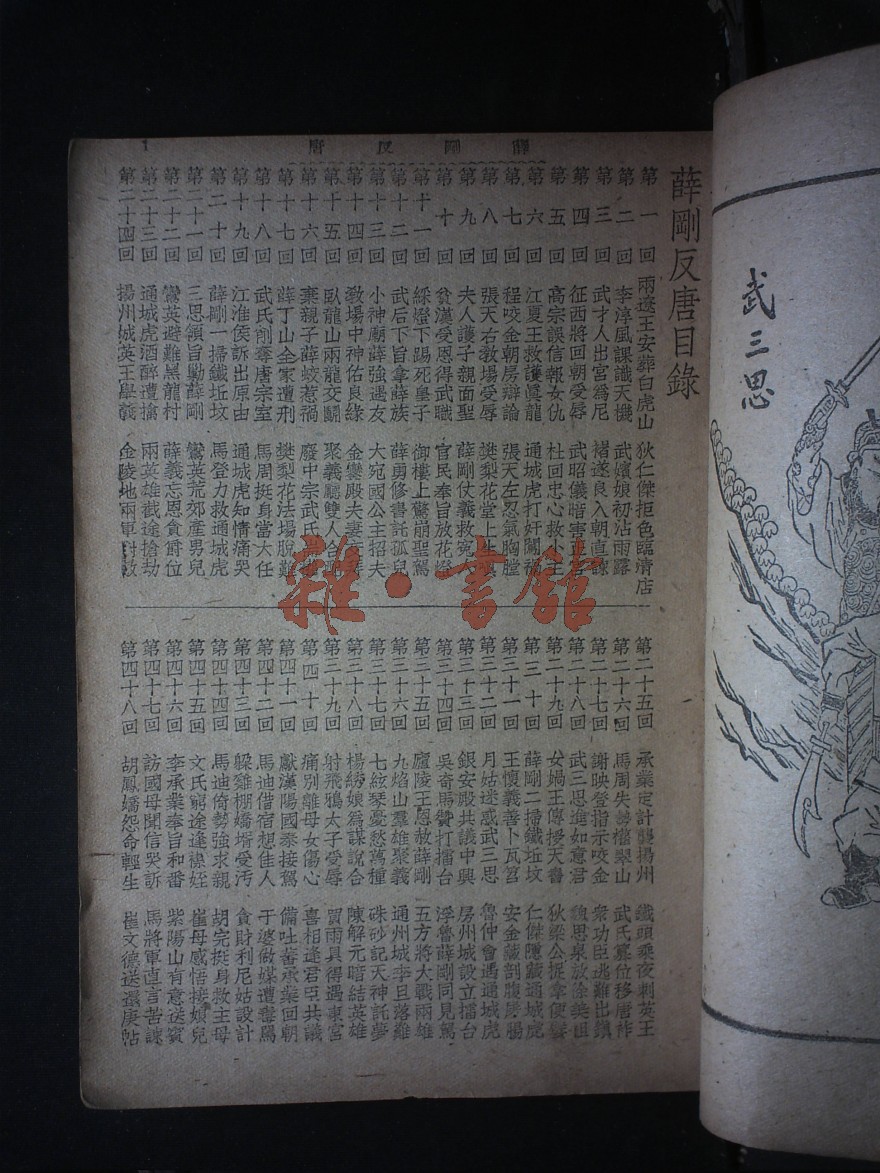 武三思
薛剛反唐
1
薛剛反唐目錄
第一回 兩遼王安葬白虎山 狄仁傑拒色臨清店
第二回 李淳風課識天機 武嬪娘初沾雨露
第三回 武才人出宮為尼 褚遂良入朝直諫
第四回 征西將回朝受辱 武昭儀暗害
第五回 高宗誤信報女仇 杜回忠心救小主
第六回 江夏王救護眞龍 通城虎打奸鬧
第七回 程咬金朝房辯論 張天左忍氣胸膛
第八回 張天右教場受辱 樊梨花堂上生
第九回 夫人護子親面聖 薛剛仗義救
第十回 貧漢受恩得武職 官民奉旨放花燈
第十一回 綵燈下踢死皇子 御樓上驚崩聖駕
第十二回 武后下旨拿薛族 薛勇修書託孤兒
第十三回 小神廟薛強遇友 大宛國公主招夫
第十四回 教場中神佑良緣 金鑾殿夫妻
第十五回 臥龍山兩龍交鬬 聚義廳雙人合
第十六回 棄親子薛蛟惹禍 廢中宗武氏
第十七回 薛丁山全家遭刑 樊梨花法場脫難
第十八回 武氏削奪唐宗室 馬周挺身當大任
第十九回 江淮侯訴出原由 通城虎知情痛哭
第二十回 薛剛一掃鐵坵坟 馬登力救通城虎
第二十一回 三思領旨勦薛剛 鸞英荒郊產男兒
第二十二回 鸞英避難黑龍村 薛義忘恩貪爵位
第二十三回 通城虎酒醉遭擒 兩英雄截途搶劫
第二十四回 揚州城英王舉義 金陵地兩軍對敵
第二十五回 承業定計襲揚州 鐵頭乘夜刺英王
第二十六回 馬周失勢檔翠山 武氏篡位移唐祚
第二十七回 謝映登指示咬金 衆功臣逃難出鎮
第二十八回 武三思進如意君 魏思泉放徐美祖
第二十九回 女媧王傳授天書 狄梁公捉拿便嬖
第三十回 薛剛二掃鐵坵坟 仁傑隱藏通城虎
第三十一回 王懷義善卜瓦笤 安金藏剖腹屠腸
第三十二回 月姑迷惑武三思 魯仲會遇通城虎
第三十三回 銀安殿共議中興 房州城設立擂台
第三十四回 吳奇馬贊打擂台 浮魯薛剛同見駕
第三十五回 廬陵王恩赦薛剛 五方將大戰兩雄
第三十六回 九焰山羣雄聚義 通州城李旦落難
第三十七回 七絃琴憂愁萬種 硃砂記天神託夢
第三十八回 楊綉娘為謀說合 陳解元暗結英雄
第三十九回 射飛鴉太子受辱 買雨具得遇東宮
第四十回 痛別離母女傷心 喜相逢君臣共議
第四十一回 獻漢陽國泰接駕 備吐蕃承業回朝
第四十二回 馬迪借宿想佳人 于婆做媒遭毒罵
第四十三回 躲雞棚嬌壻受汚 貪財利尼姑設計
第四十四回 馬迪倚勢強求親 胡完挺身救主母
第四十五回 文氏窮途逢襟姪 崔母感悟接嬌兒
第四十六回 李承業奉旨和番 紫陽山有意送寶
第四十七回 訪國母聞信哭訴 馬將軍直言苦諫
第四十八回 胡鳳嬌怨命輕生 崔文德送還庚帖
雜·書館